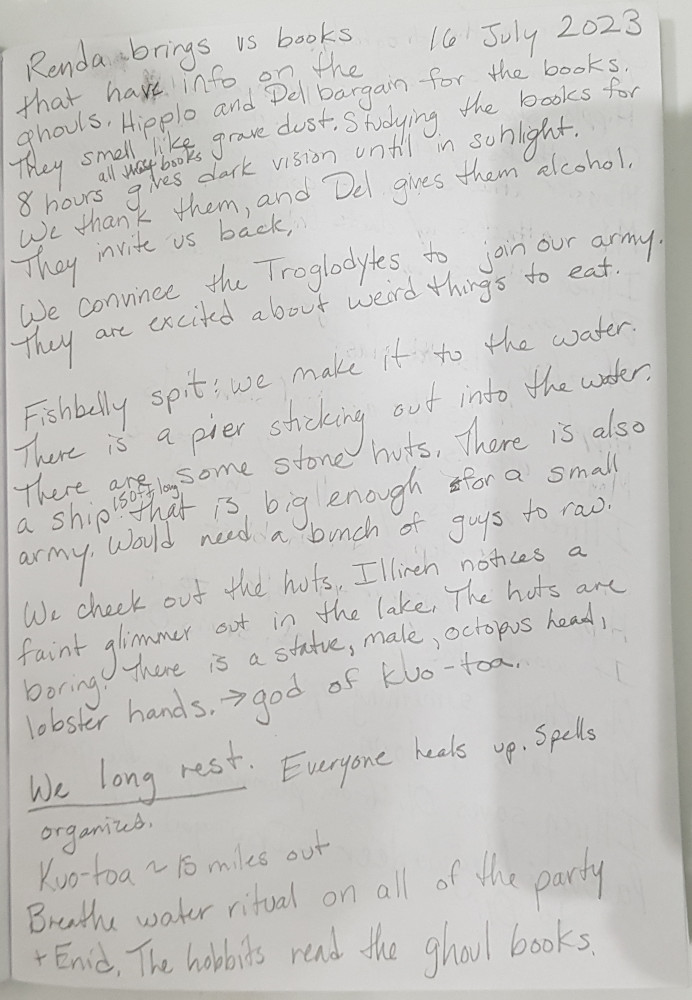 16 July 2023
Renda brings us books
that have info on the
ghouls. Hipplo and Del bargain for the books.
They smell like grave dust. Studying the books for
all books
8 hours gives dark vision until in sunlight.
We thank them, and Del gives them alcohol.
They invite us back,
We convince the Troglodytes to join our army.
They are excited about weird things to eat.
Fishbelly spit: we make it to the water.
There is a pier sticking out into the water.
There are some stone huts. There is also
150ft long
a ship that is big enough for a small
army. Would need a bunch of guys to row.
We check out the huts. Illireh notices a
faint glimmer out in the lake. The huts are
boring. There is a statue, male, octopus head,
lobster hands. → god of kuo-toa.
We long rest. Everyone heals up. Spells
organized.
Kuo-toa ~ 15 miles out
Breathe water ritual on all of the party
+ Enid. The hobbits read the ghoul books.